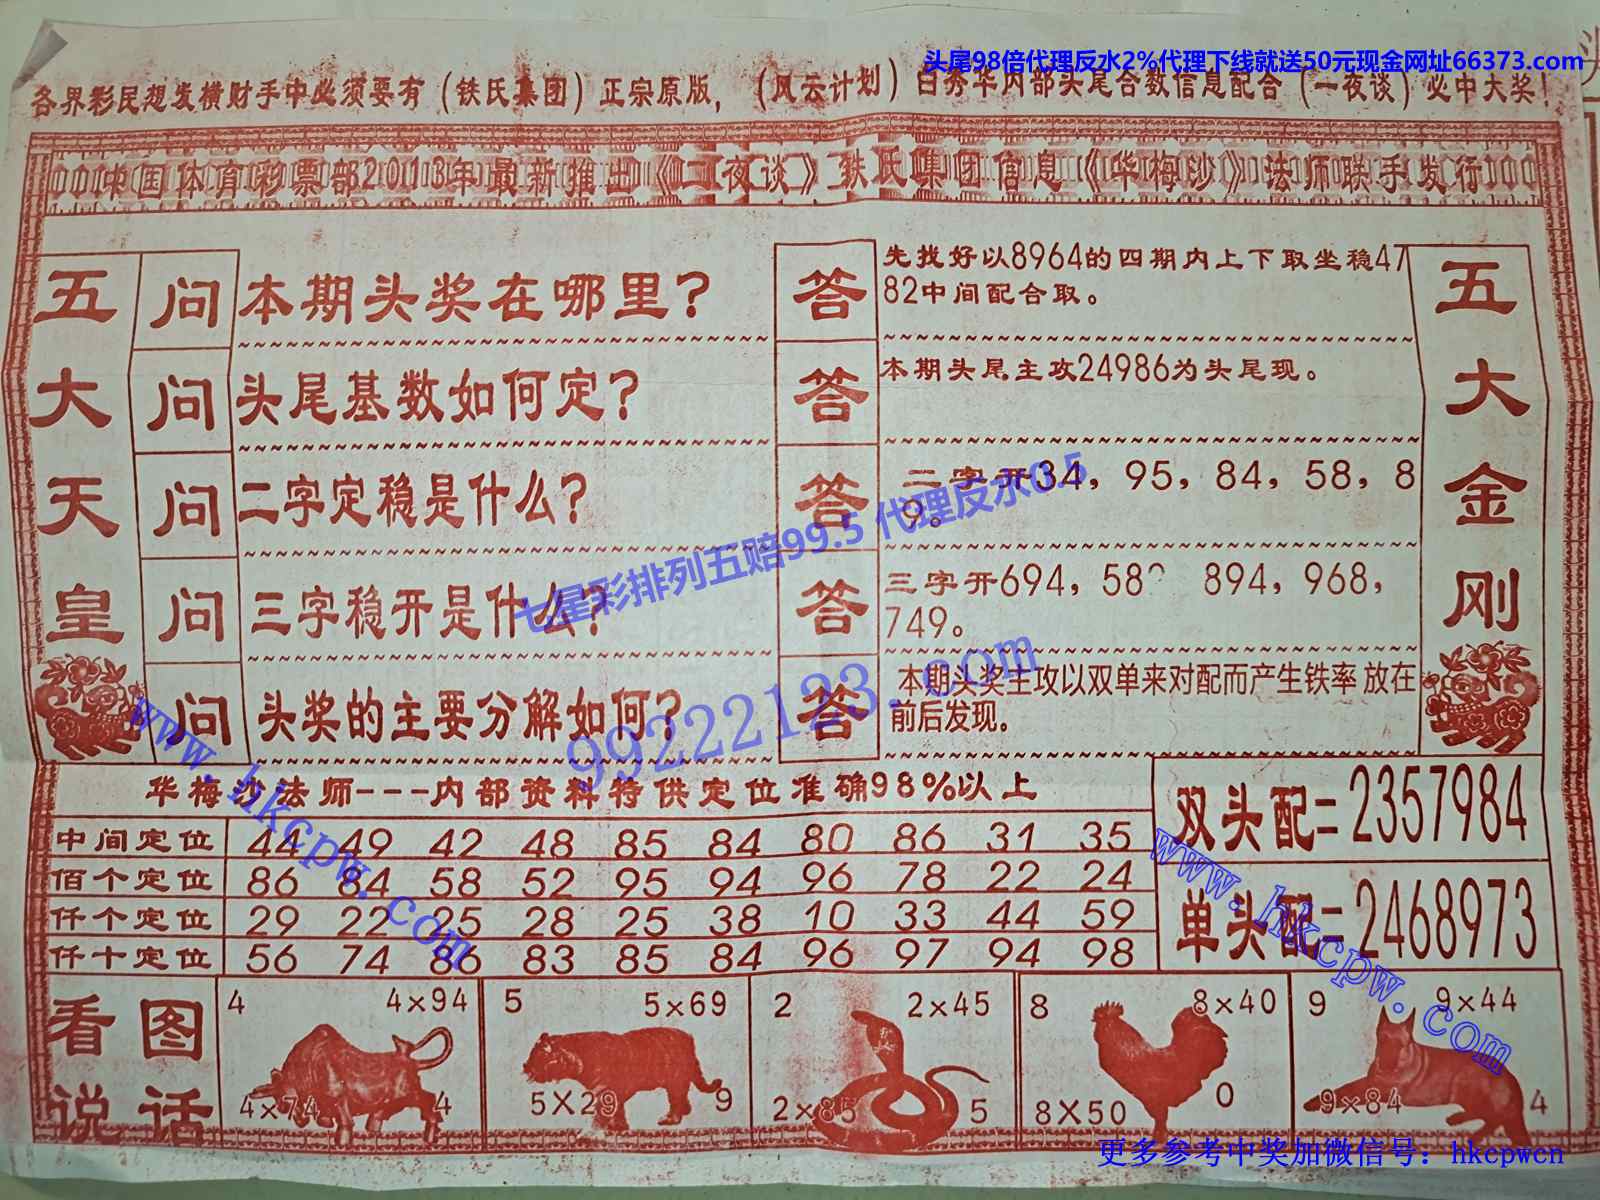 头尾98倍代理反水2%代理下线就送50元现金网址66373.com
各界彩民想发横财手中必须要有（铁氏集团）正宗原版，（风云计划）白秀华内部头尾合数信息配合（一夜谈）必中大奖！
中国体育彩票部2013年最新推出《二夜谈》铁氏集团信息《华梅沙》法师联手发行
五大天皇
问 本期头奖在哪里？
答 先找好以8964的四期内上下取坐稳47
82中间配合取。
问 头尾基数如何定？
答 本期头尾主攻24986为头尾现。
问 二字定稳是什么？
答 二字开34，95，84，58，8
9。
问 三字稳开是什么？
答 三字开694，58? 894，968，
749。
问 头奖的主要分解如何？
答 本期头奖主攻以双单来对配而产生铁率 放在
前后发现。
五大金刚
七星彩排列五赔99.5 代理反水0.5
99222123.com
www.hkcpw.com
华梅沙法师---内部资料特供定位准确98%以上
中间定位 44 49 42 48 85 84 80 86 31 35
佰个定位 86 84 58 52 95 94 96 78 22 24
仟个定位 29 22 25 28 25 38 10 33 44 59
仟十定位 56 74 86 83 85 84 96 97 94 98
双头配=2357984
单头配=2468973
www.hkcpw.com
看图说话
4 4×94
4×74 4
5 5×69
5×29 9
2 2×45
2×85 5
8 8×40
8×50 0
9 9×44
9×84 4
更多参考中奖加微信号：hkcpwcn